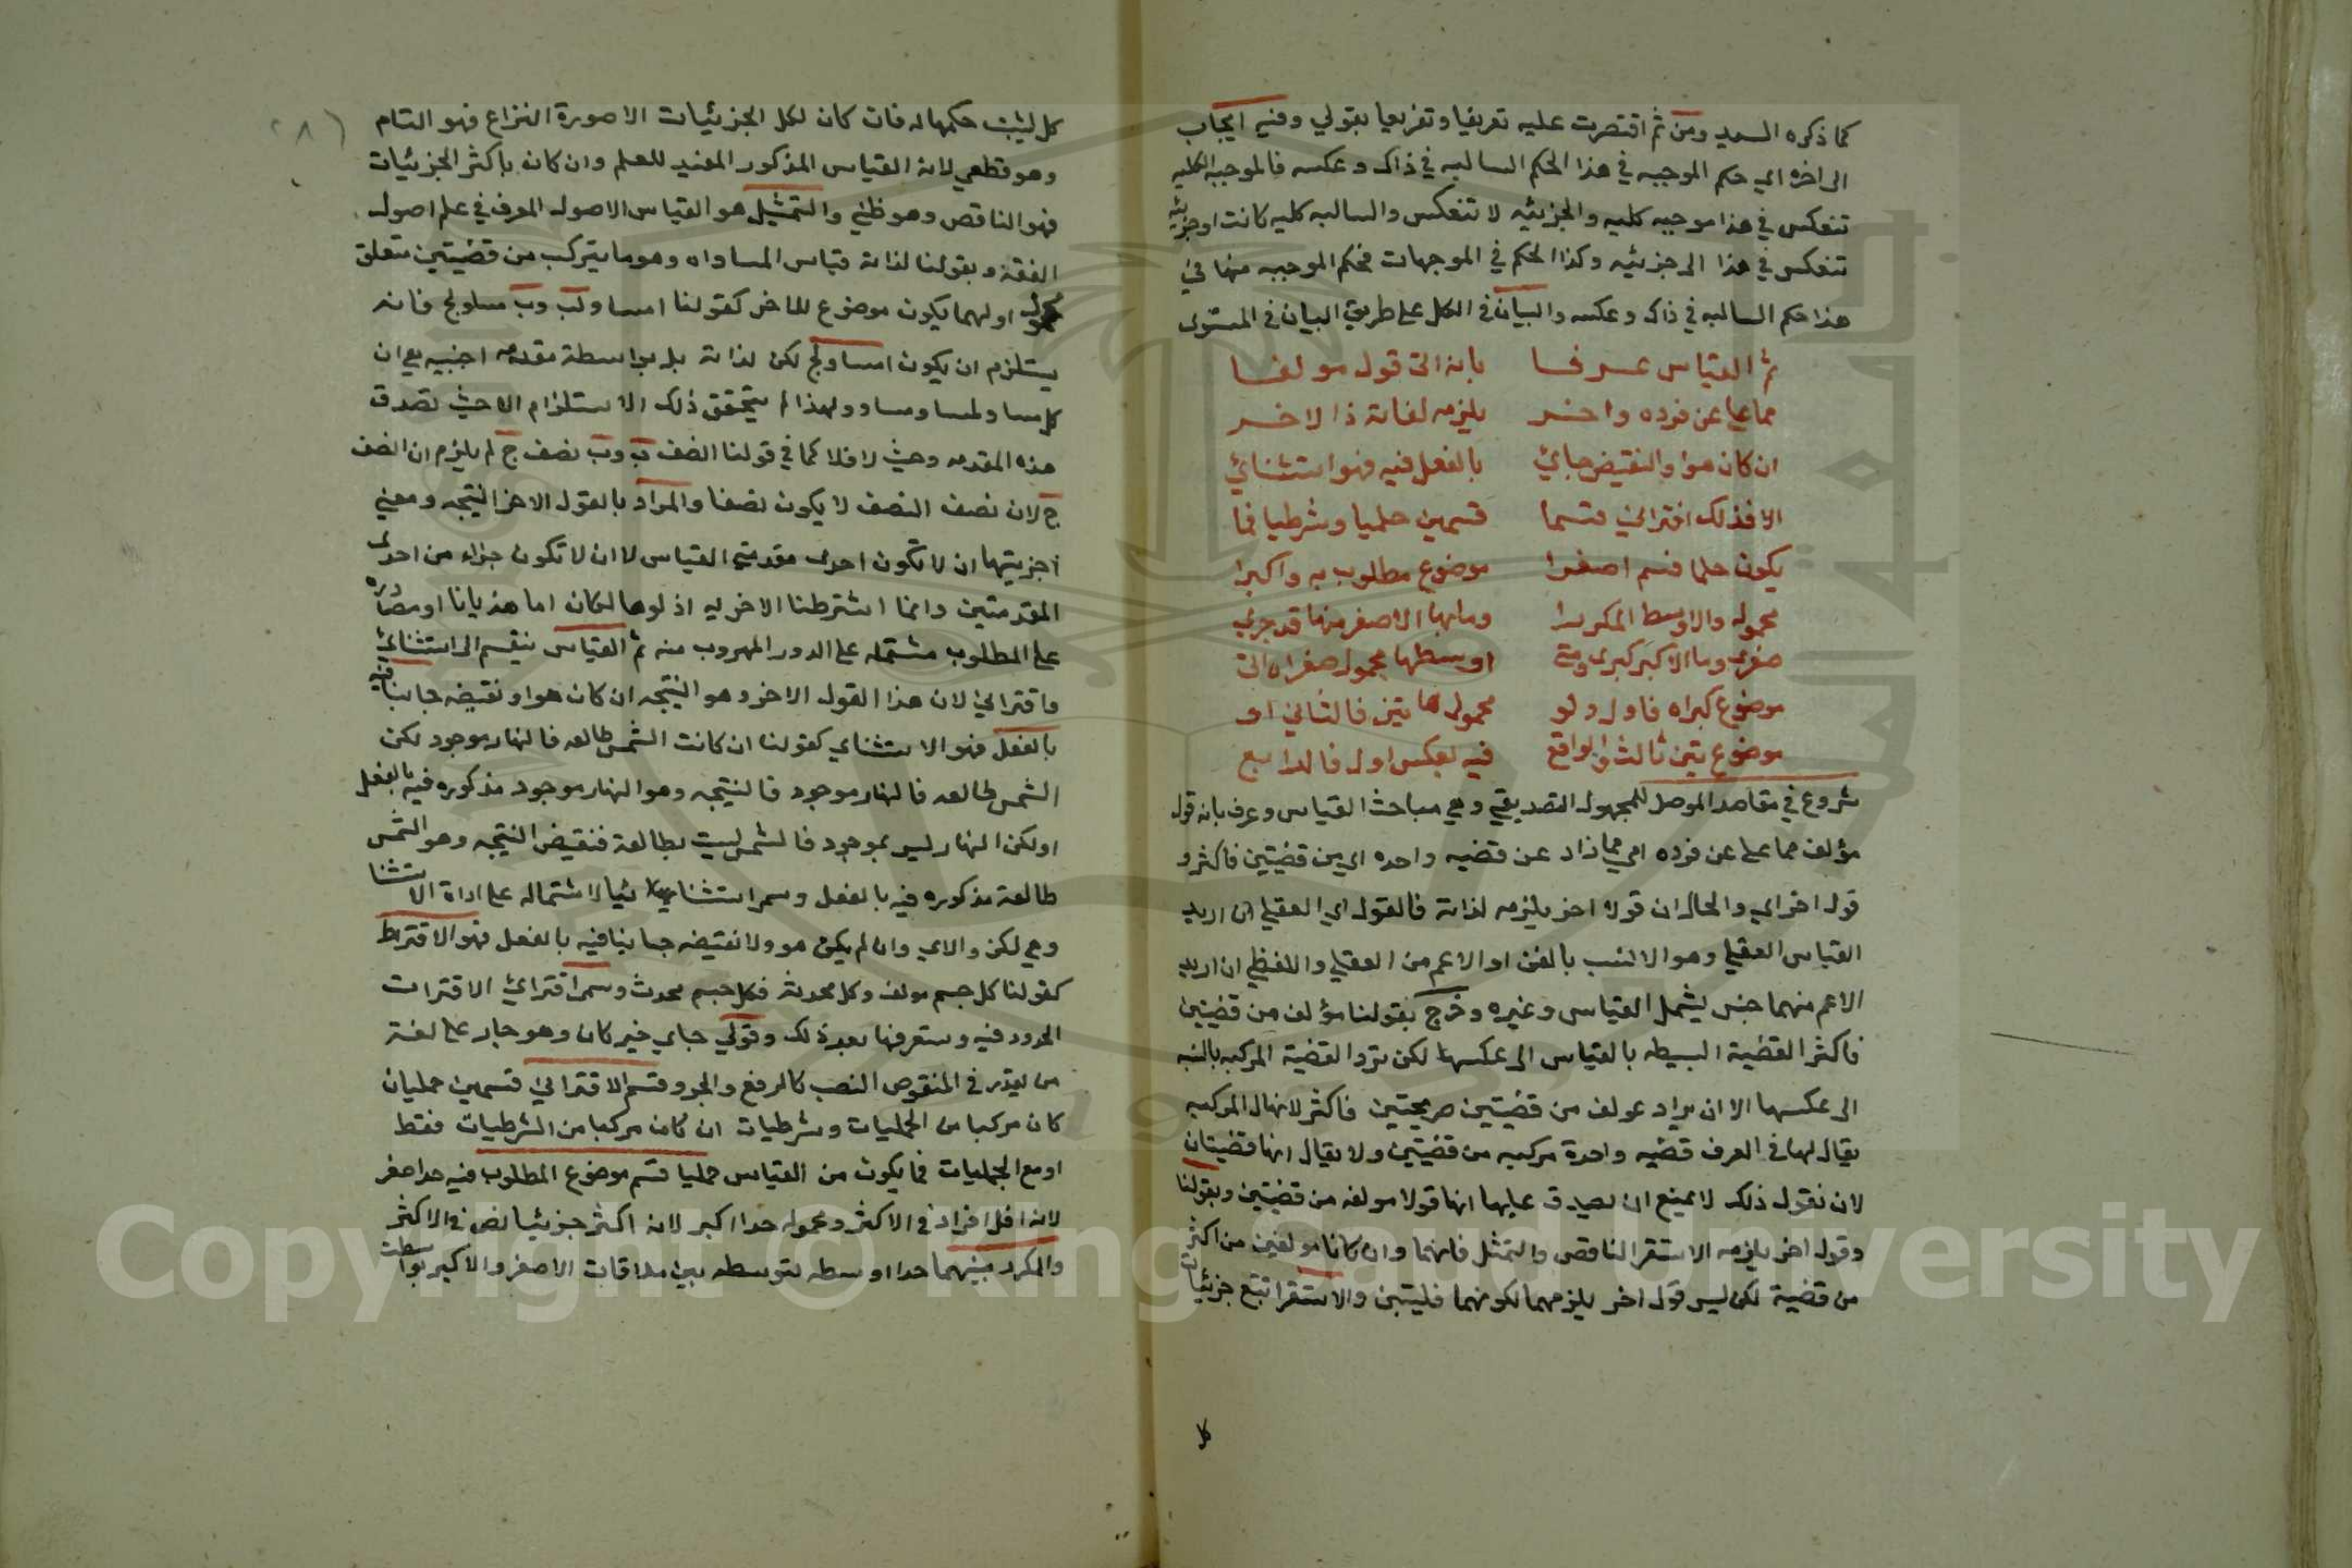 كما ذكره السعد ومن ثم اقتصرت عليه تعريفا وتفريعا بقولي وفيه ايجاب
الى اخره اي حكم الموجبه في هذا الحكم السالبه في ذاك وعكسه فالموجبه الكليه
تنعكس في هذا موجبه كليه والجزئيه لا تنعكس والسالبه كليه كانت اوجزئيه
تنعكس في هذا الى جزئيه وكذا الحكم في الموجهات فحكم الموجبه منها في
هذا حكم السالبه في ذاك وعكسه والبيان في الكل على طريق البيان في المستوى
ثم القياس عرفا بانه اتى قول مولفا
مما على عن فرده واخر يلزمه لذاته ذا الاخر
ان كان هوا والنقيض جائي بالفعل فيه فهو استثنائي
الا فذلك اقتراني قسما قسمين حمليا وشرطيا فما
يكون حمليا فسم اصغرا موضوع مطلوب به واكبرا
محموله والاوسط المكررا وما بها الاصغر منها قد جرى
صغرى وما الاكبر كبرى ومتى اوسطها محمول صغراه اتى
موضوع كبراه فاول ولو محمول هاتين فالثاني او
موضوع تين ثالث والواقع فيه بعكس اول فالرابع
شروع في مقاصد الموصل للمجهول التصديقي وهي مباحث القياس وعرف بانه قول
مؤلف مما على عن فرده اي مما زاد عن قضيه واحده اي من قضيتين فاكثر و
قول اخر اي والحال ان قولا اخر يلزمه لذاته فالقول اي العقلي ان اريد
القياس العقلي وهو الانسب بالفن او الاعم من العقلي واللفظي ان اريد
الاعم منهما جنس ليشمل القياس وغيره وخرج بقولنا مؤلف من قضيتين
فاكثر القضية البسيطه بالقياس الى عكسها لكن ترد القضية المركبه بالنسبه
الى عكسها الا ان يراد بمولف من قضيتين صريحتين فاكثر لا نها المركبه
يقال لها في العرف قضيه واحدة مركبه من قضيتين ولا يقال انها قضيتان
لان نقول ذلك لا يمنع ان يصدق عليها انها قولا مولفه من قضيتين وبقولنا
وقول اخر يلزمه الاستقرا الناقص والتمثل فانهما وان كانا مولفين من اكثر
من قضية لكن ليس قول اخر يلزمهما لكونهما فليتبين والاستقرا تتبع جزئيات
كل
كل ليثبت حكمها له فان كان لكل الجزئيات الا صورة النزاع فهو التام
وهو قطعي لانه القياس المذكور المفيد للعلم وان كان باكثر الجزئيات
فهو الناقص وهو ظني والتمثيل هو القياس الاصولي المعرف في علم اصول
الفقه وبقولنا لذاته قياس المساواه وهو ما يتركب من قضيتين متعلق
محمول اولهما يكون موضوع للاخر كقولنا ا مساو لب وب مساو لج فانه
يستلزم ان يكون ا مساو لج لكن لذاته بل بواسطة مقدمه اجنبيه هي ان
كل مساو لمساو مساو ولهذا لم يتحقق ذلك الاستلزام الا حيث تصدق
هذه المقدمه وحيث لا فلا كما في قولنا ا نصف ب وب نصف ج لم يلزم ان ا نصف
ج لان نصف النصف لا يكون نصفا والمراد بالقول الاخر النتيجه ومعنى
اخريتها ان لا تكون احدى مقدمتي القياس لا ان لا تكون جزاء من احدى
المقدمتين وانما اشترطنا الاخريه اذ لولاها لكان اما هذيانا او مصادره
على المطلوب مشتمله على الدور المهروب منه ثم القياس ينقسم الى استثنائي
واقتراني لان هذا القول الاخر وهو النتيجه ان كان هو او نقيضه جا بنا فيه
بالفعل فهو الاستثناي كقولنا ان كانت الشمس طالعه فالنهار موجود لكن
الشمس طالعه فالنهار موجود فالنتيجه وهو النهار موجود مذكوره فيه بالفعل
او لكن النهار ليس بموجود فالشمس ليست بطالعة فنقيض النتيجه وهو الشمس
طالعة مذكوره فيه بالفعل وسمي استثنائيا لاشتماله على اداة الاستثنا
وهي لكن والا اي وان لم يكن هو ولا نقيضه جا بنا فيه بالفعل فهو الاقتراني
كقولنا كل جسم مولف وكل مولف محدث فكل جسم محدث وسمي اقترائي لاقترات
الحدود فيه وستعرفها بعد ذلك وقولي جاي خبر كان وهو جار على لغة
من يقدر في المنقوص النصب كالرفع والجر وقسم الاقتراني قسمين حمليان
كان مركبا من الحمليات وشرطيات ان كان مركبا من الشرطيات فقط
او مع الحمليات فما يكون من القياس حمليا قسم موضوع المطلوب فيه حدا صغر
لانه اقل افراد في الاكثر ومحموله حدا اكبر لانه اكثر جزئيا نص في الاكثر
والمكرر بينهما حدا اوسطه لتوسطه بين ملاقات الاصغر والاكبر بواسطته
Copyright © King Saud University